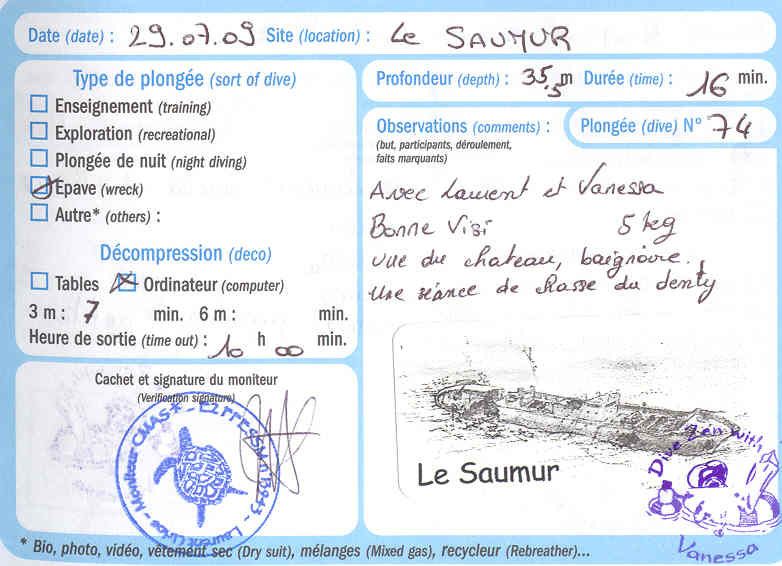 Date (date) : 29.07.09 Site (location) : Le SAUMUR
Type de plongée (sort of dive)
Enseignement (training)
Exploration (recreational)
Plongée de nuit (night diving)
Epave (wreck)
Autre* (others) :
Décompression (deco)
Tables Ordinateur (computer)
3 m : 7 min. 6 m : min.
Heure de sortie (time out) : 10 h 00 min.
Cachet et signature du moniteur
(Verification signature)
Moniteur CMAS
Laurent
Profondeur (depth) : 35,5 m Durée (time) : 16 min.
Observations (comments) :
(but, participants, déroulement,
faits marquants)
Plongée (dive) N° 74
Avec Laurent et Vanessa
Bonne Visi 5 kg
vue du chateau, baignoire.
Une séance de chasse du denty
Le Saumur
Dive Zen with
Vanessa
* Bio, photo, vidéo, vêtement sec (Dry suit), mélanges (Mixed gas), recycleur (Rebreather)...